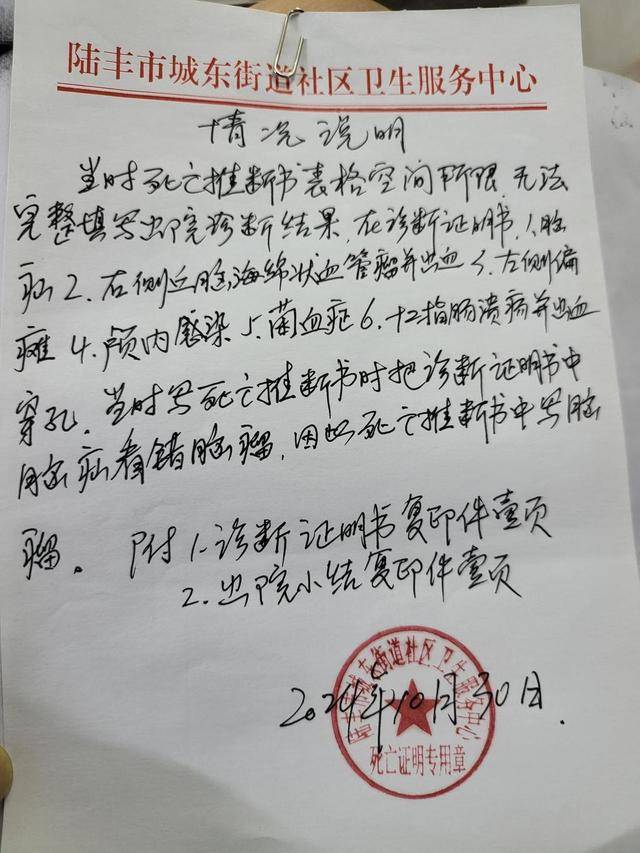 陆丰市城东街道社区卫生服务中心
情况说明
当时死亡推断书表格空间所限,无法
完整填写出院诊断结果,在诊断证明书,1.脑
疝2、右侧丘脑海绵状血管瘤并出血3、左侧偏
瘫4.颅内感染5.菌血症6.十二指肠溃疡并出血
穿孔。当时写死亡推断书时把诊断证明书中
脑疝看错脑瘤,因此死亡推断书中写脑
瘤。 附1.诊断证明书复印件壹页
2.出院小结复印件壹页
2024年10月30日.
陆丰市城东街道社区卫生服务中心
死亡证明专用章